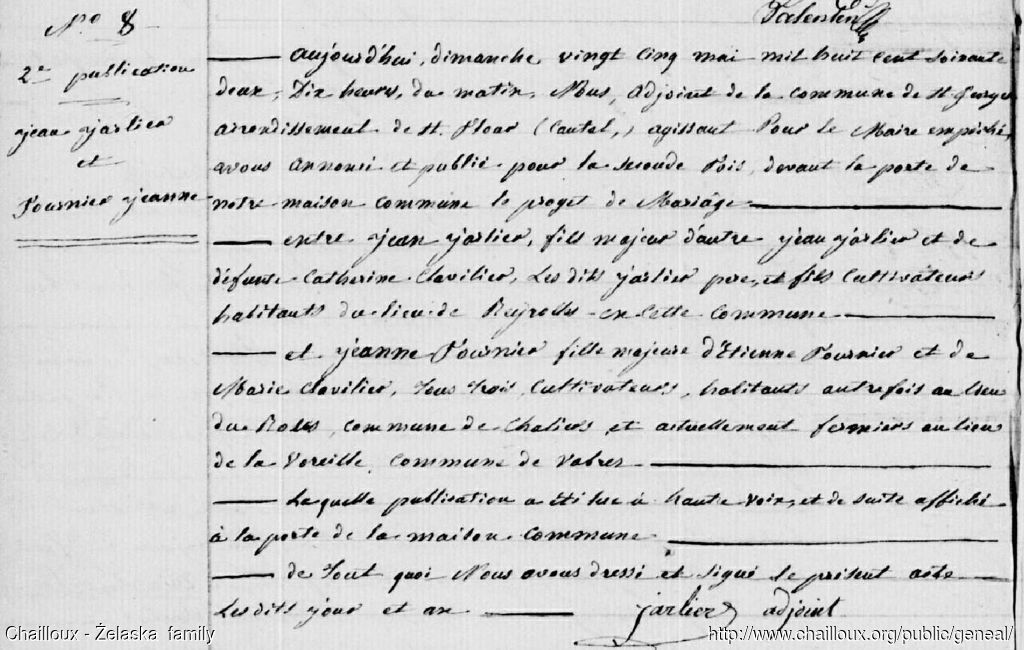 N° 8
2e publication
jean jarlier
et
Fournier jeanne
Valentin
aujourd'hui, dimanche vingt cinq mai mil huit cent soixante
deux, Dix heures, du matin, Nous, adjoint de la commune de St. Georges
arrondissement de St. Flour (Cantal,) agissant Pour le Maire empêché,
avons annoncé et publié pour la seconde fois, devant la porte de
notre maison commune le projet de Mariage
entre jean jarlier, fils majeur d'autre jean jarlier et de
défunte Catherine Clavilier, Les dits jarlier pere, et fils Cultivateurs
habitants du lieu de Reyrolles en Cette Commune
et jeanne Fournier fille majeure d'Etienne Fournier et de
Marie Clavilier, tous trois, Cultivateurs, habitants autrefois au lieu
du commune de Chaliers et actuellement fermiers au lieu
de la Voreille commune de Vabres
Laquelle publication a été lue à haute voix, et de suite affiché
à la porte de la maison Commune
de tout quoi Nous avons dressé et signé le présent acte
Les dits jour et an jarlier adjoint
Chailloux - Żelaska family
http://www.chailloux.org/public/geneal/